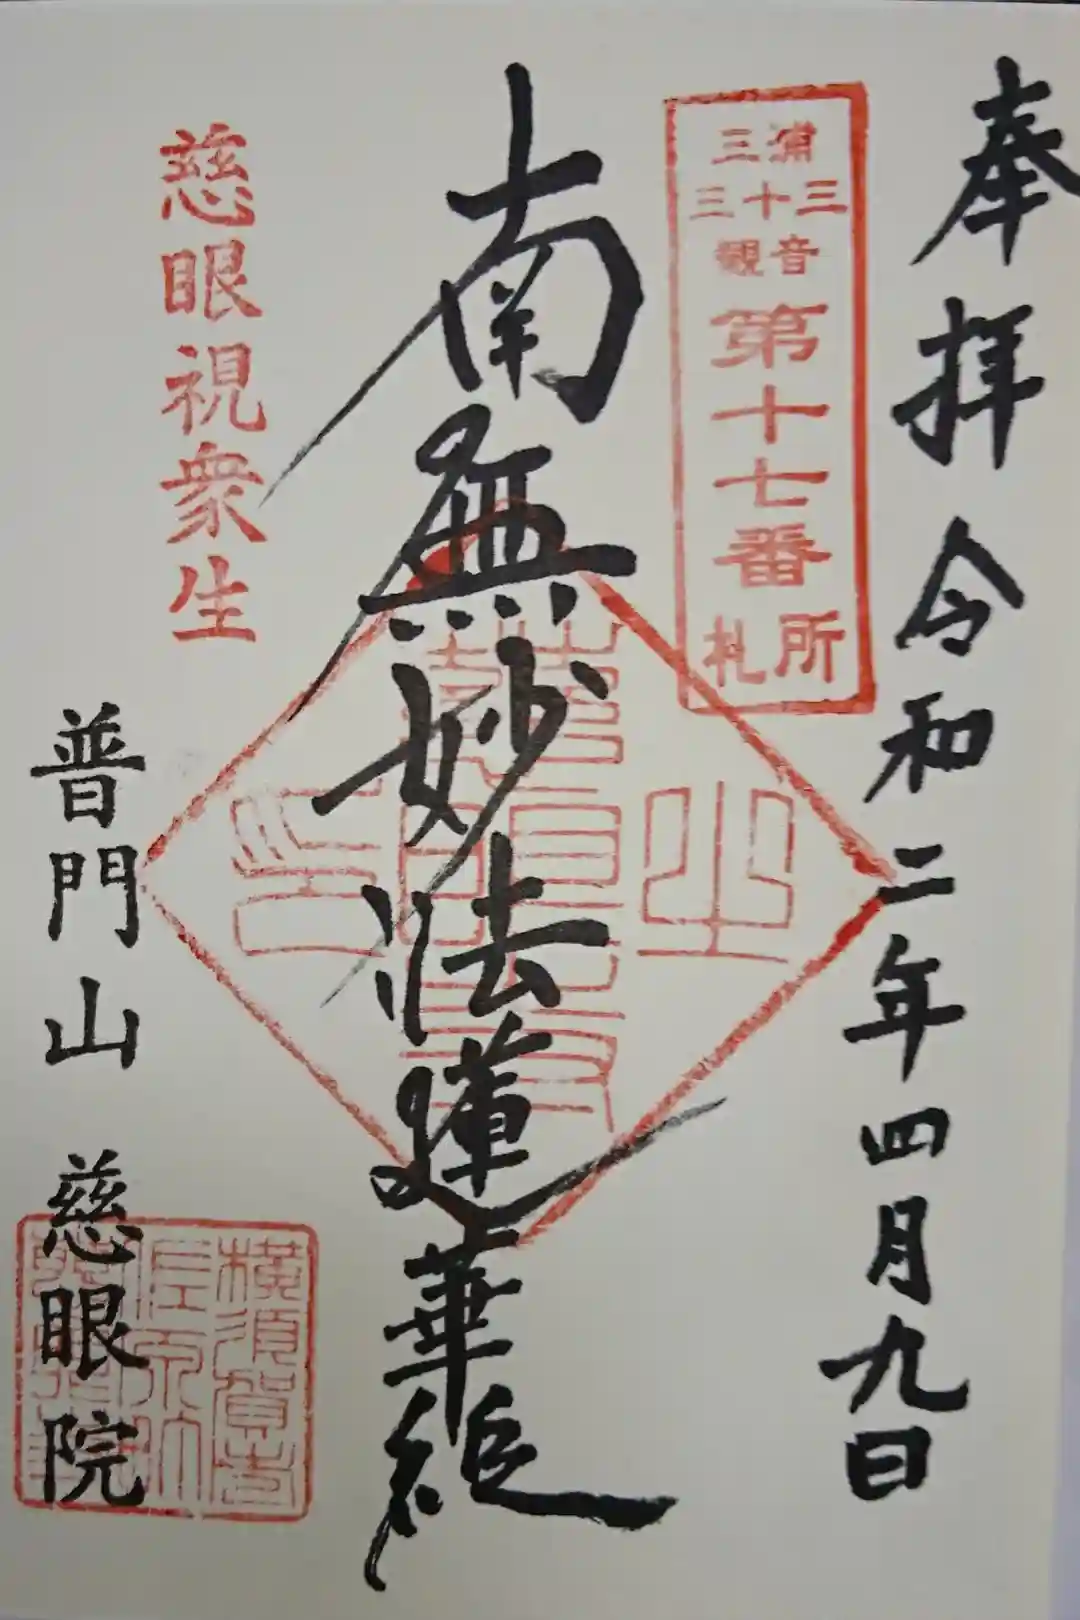 奉拝 令和二年四月九日
三浦
三十三
観音
第十七番
札所
南無妙法蓮華経
慈眼視衆生
普門山 慈眼院
横須賀市